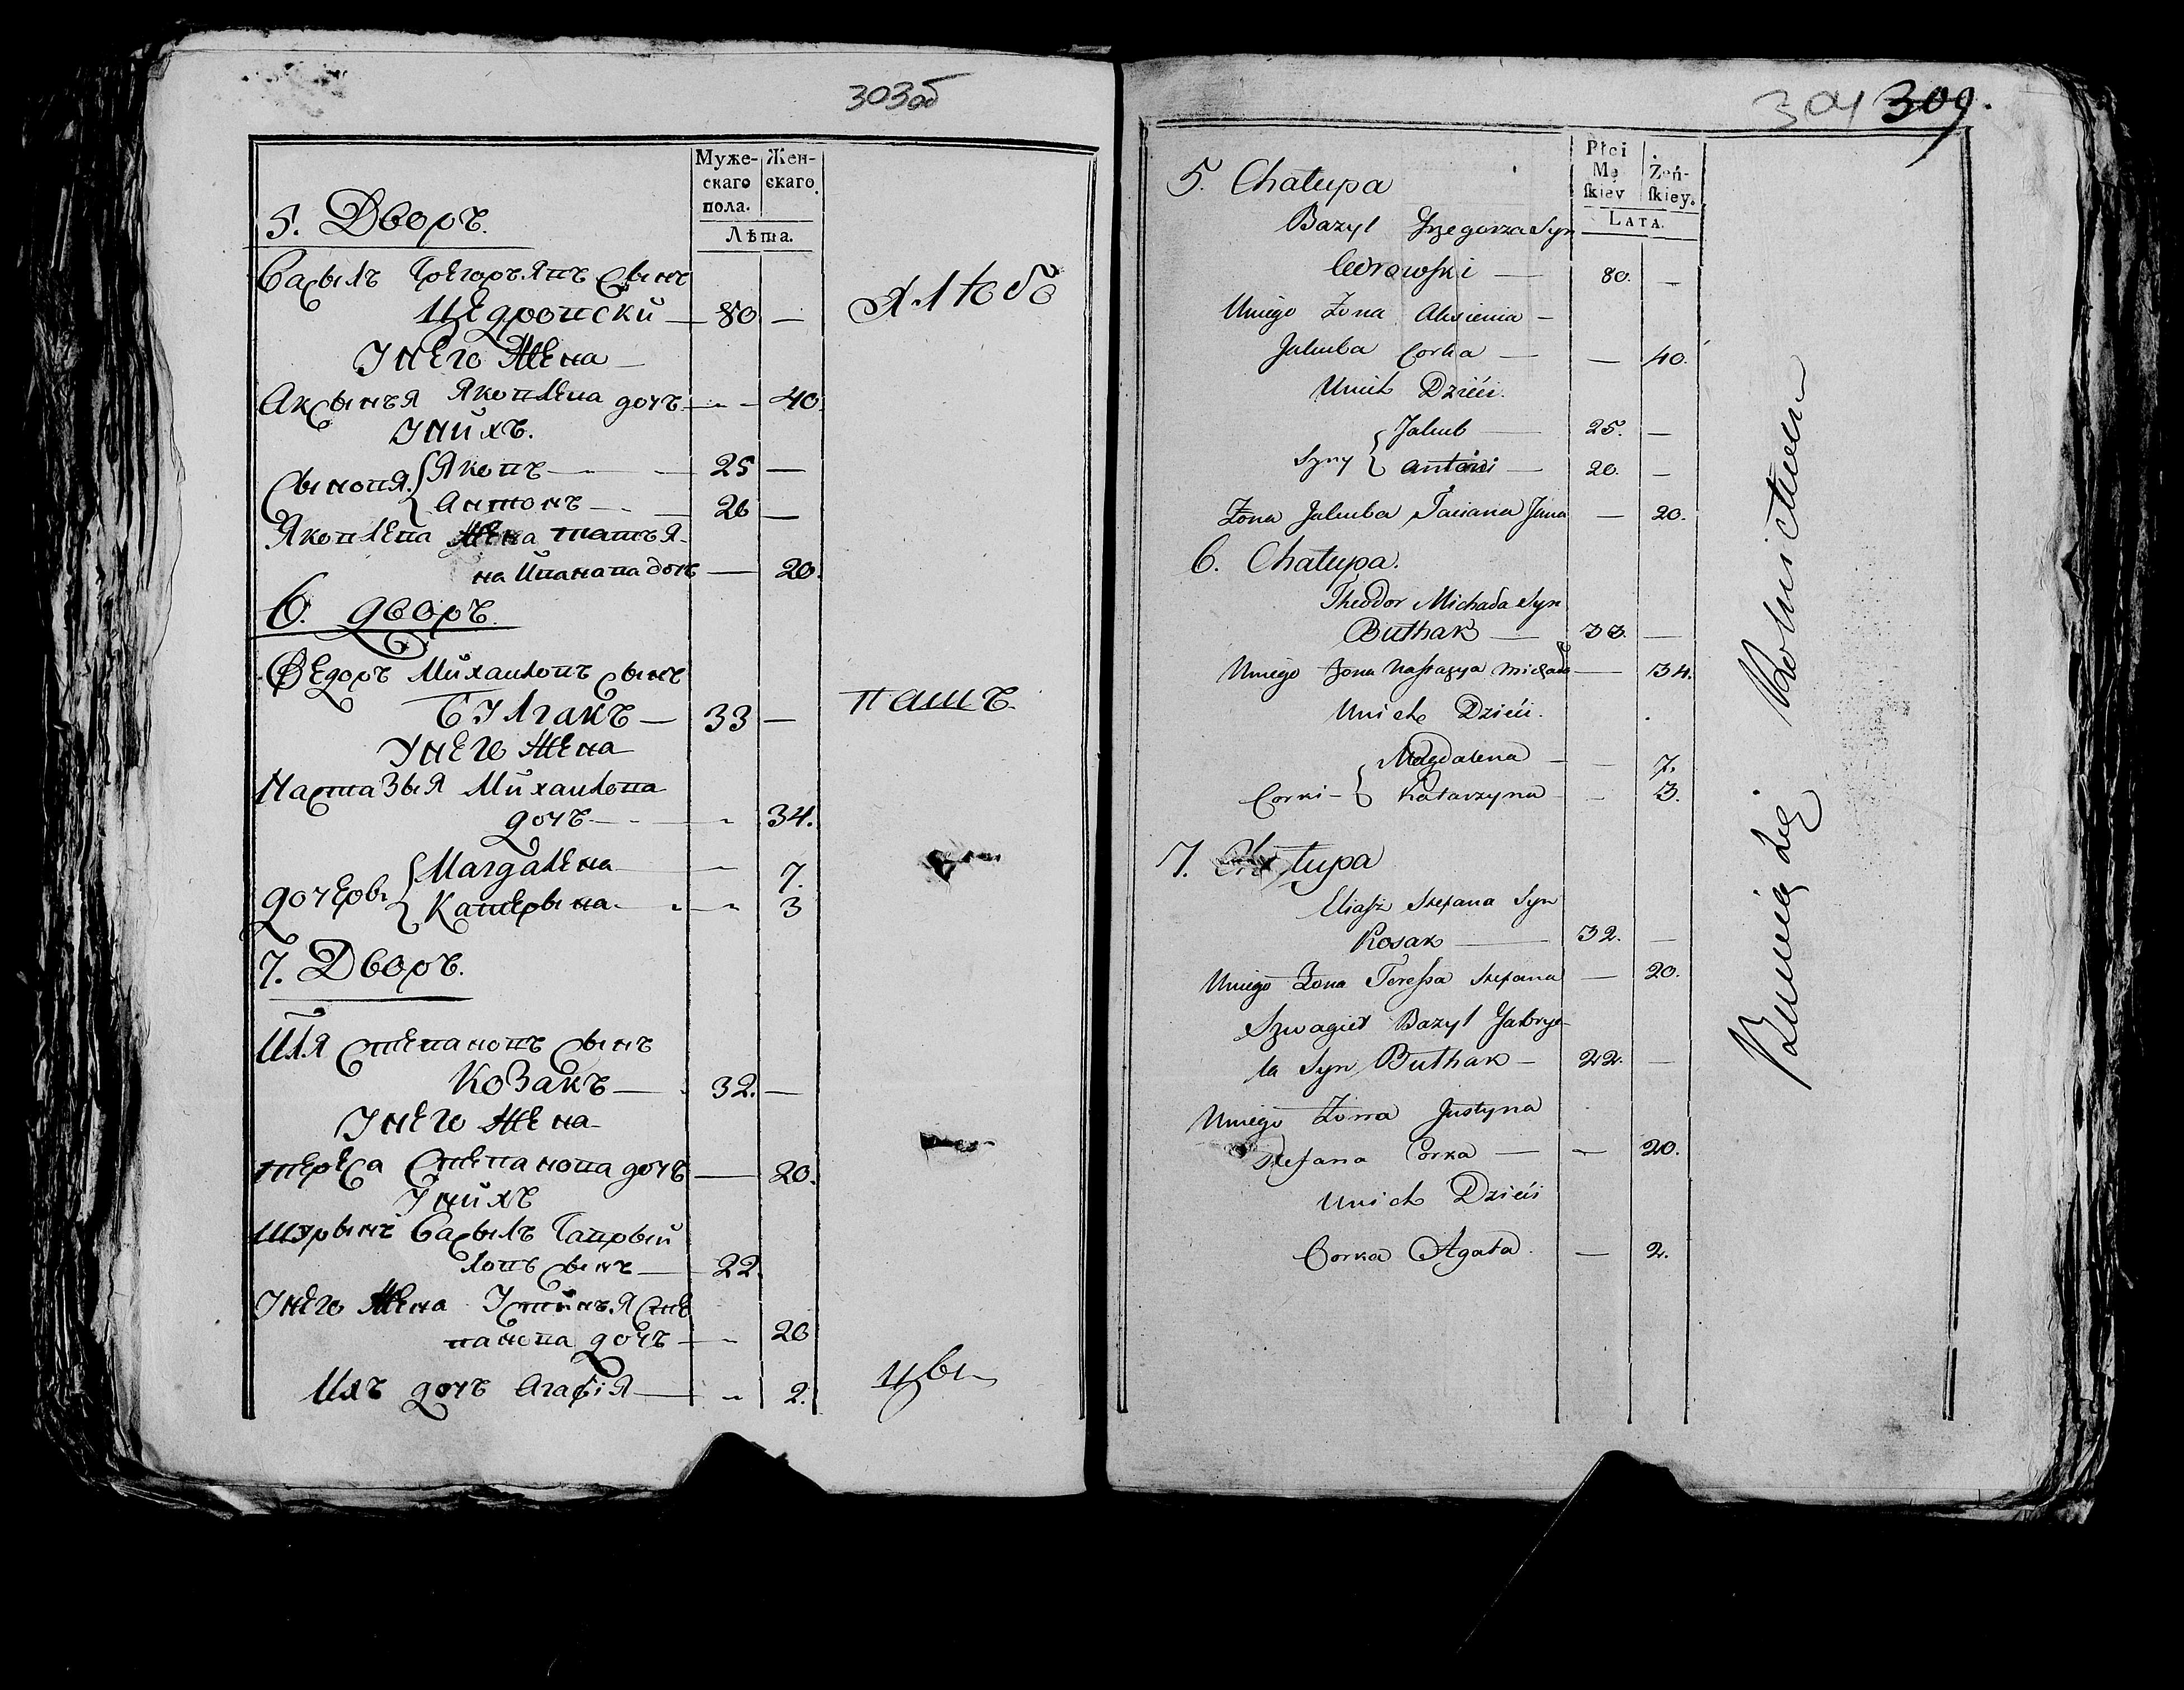 303об
Муже- Жен-
скаго скаго
пола.
Лѣта.
5. Дворъ.
Васыль Грегорьявъ Сынъ
Цедровски — 80 —
Унего Жена —
Аксынья Яковлева дочь — — 40.
Унихъ.
Сыновя { Яковъ — 25 —
Антонъ — 20 —
Яковлева Жена татья-
на Иванава дочь — 20.
6. дворъ.
Федоръ Михайловъ Сынъ
Булгакъ — 33 —
Унего Жена
Настазыя Михайлова
дочь — — 34.
дочеры { Магдалена — 7.
Катерына — — 3
7. Дворъ.
Илія Степановъ Сынъ
Козакъ — 32. —
Унего Жена
тереса Степанова дочь — 20.
Унихъ
Шурынъ Васыль Гаврый
ловъ сынъ — 22.
Унего Жена Устинья Сте
панова дочь — 20
Ихъ дочь Агафія — 2.
Алѣбо
вашъ.
цы
304 309.
Płci
Mę Żeń-
skiey skiey.
LATA.
5. Chałupa
Bazyl Grzegorza Syn
Cedrowski — 80. —
Uniego Żona Aksienia —
Jakuba Corka — — 40.
Unich Dzieci.
Jakub — 25. —
Syny { Antoni — 20. —
Żona Jakuba Taciana Jana — 20.
6. Chałupa.
Theodor Michała Syn
Buthak — 33. —
Uniego Żona Nastazya Michała — 34.
Unich Dzieci.
Magdalena — — 7.
Corki — { Katarzyna — — 3.
7. Chałupa
Eliasz Stefana Syn
Kosak — 32. —
Uniego Żona Teressa Stefana — 20.
Szwagier Bazyl Gabrye-
la Syn Buthak — 22. —
Uniego Żona Justyna
Stefana Corka — — 20.
Unich Dzieci
Corka Agata. — 2.